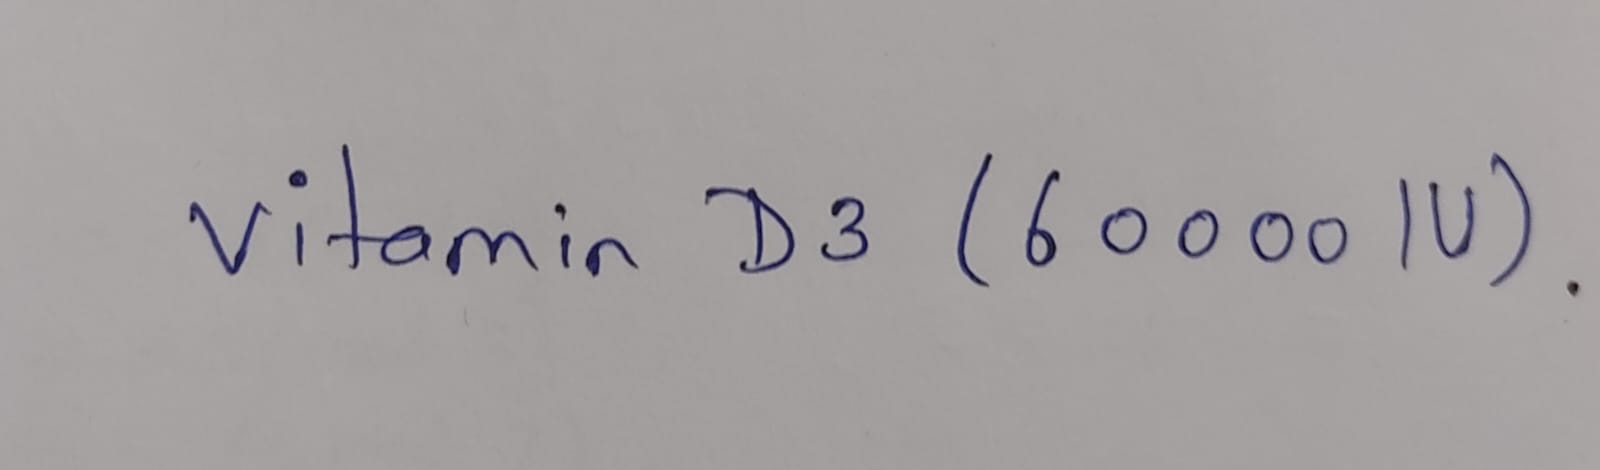 Vitamin D3 (60000 IU).